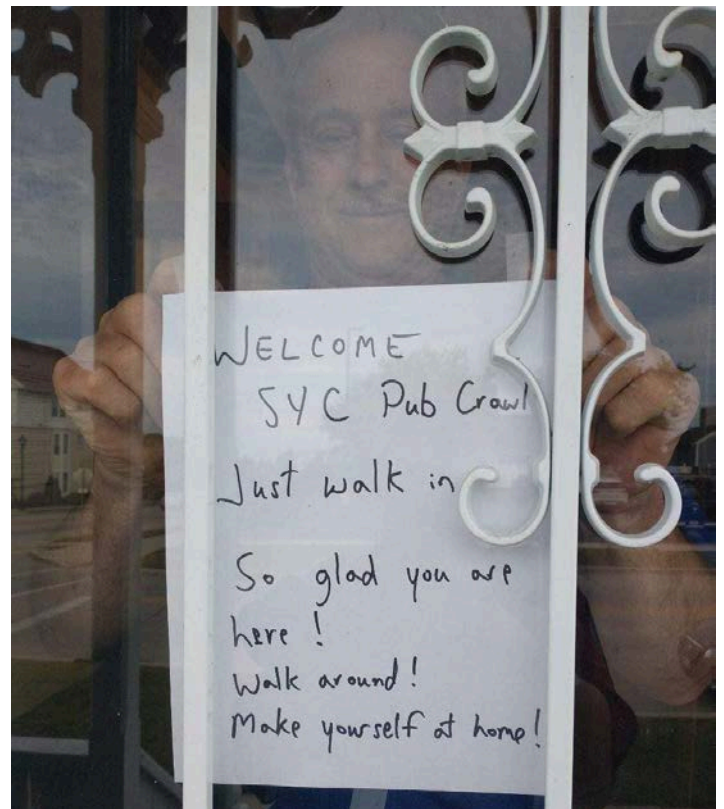 WELCOME
SYC Pub Crawl
Just walk in
So glad you are
here!
Walk around!
Make yourself at home!